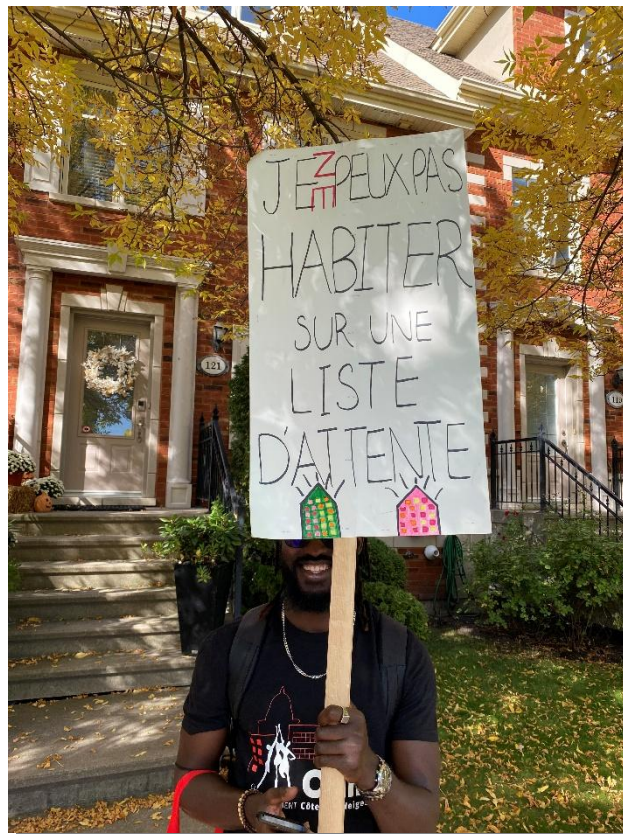 JE NE PEUX PAS
HABITER
SUR UNE
LISTE
D'ATTENTE
121
MENT Côte